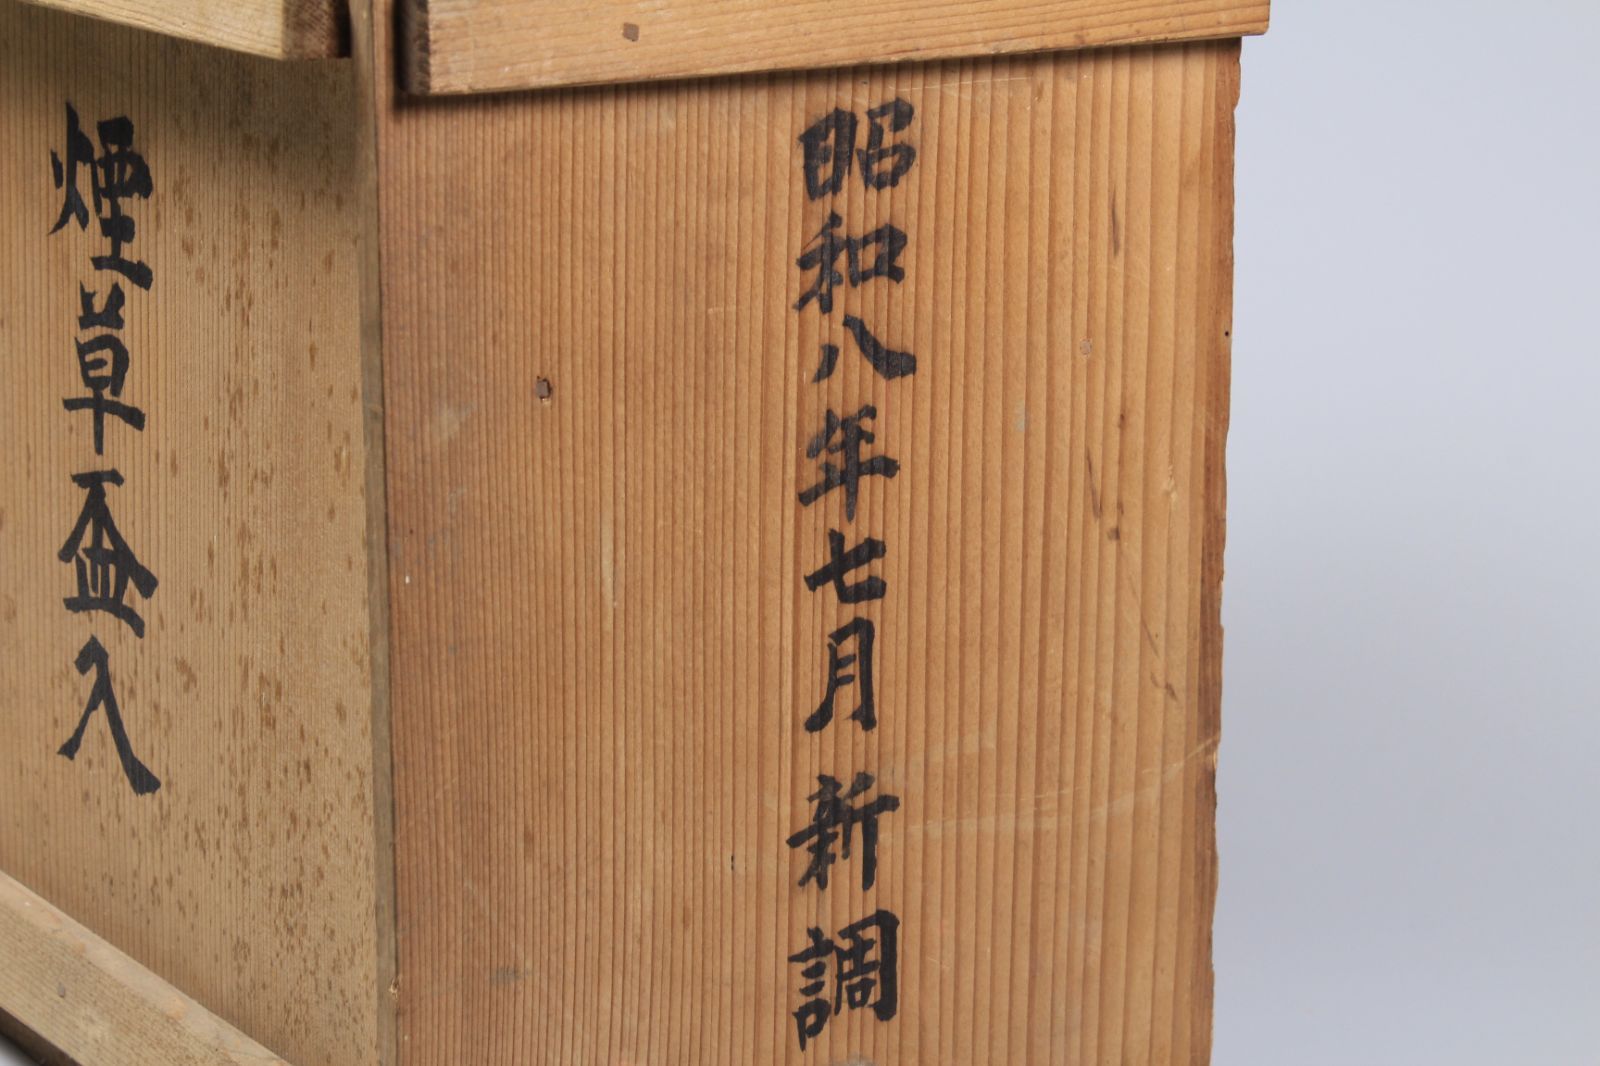 昭和八年七月 新調
煙草盃入